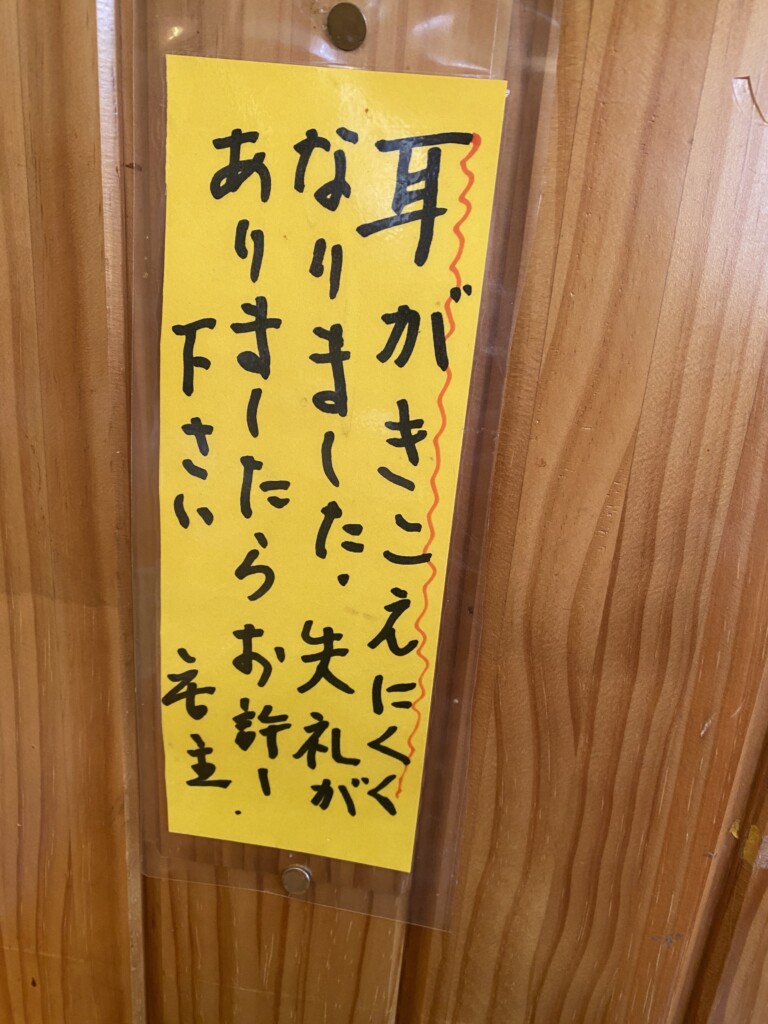 耳がきこえにくく
なりました.失礼が
ありましたらお許し.
下さい 店主